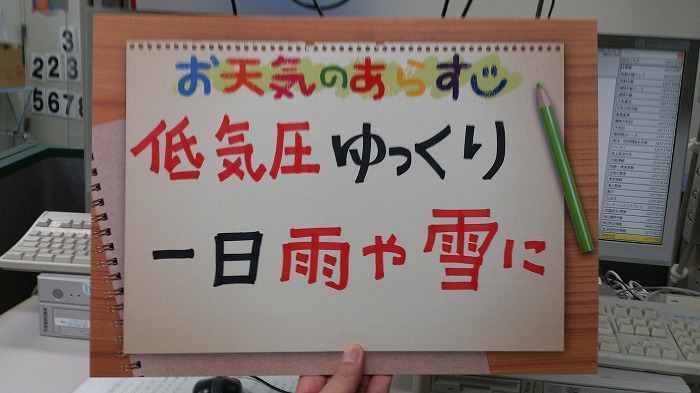 お天気のあらす
低気圧ゆっくり
一日雨や雪に
3
2 2 3
5 6 7 8
TOSHIBA